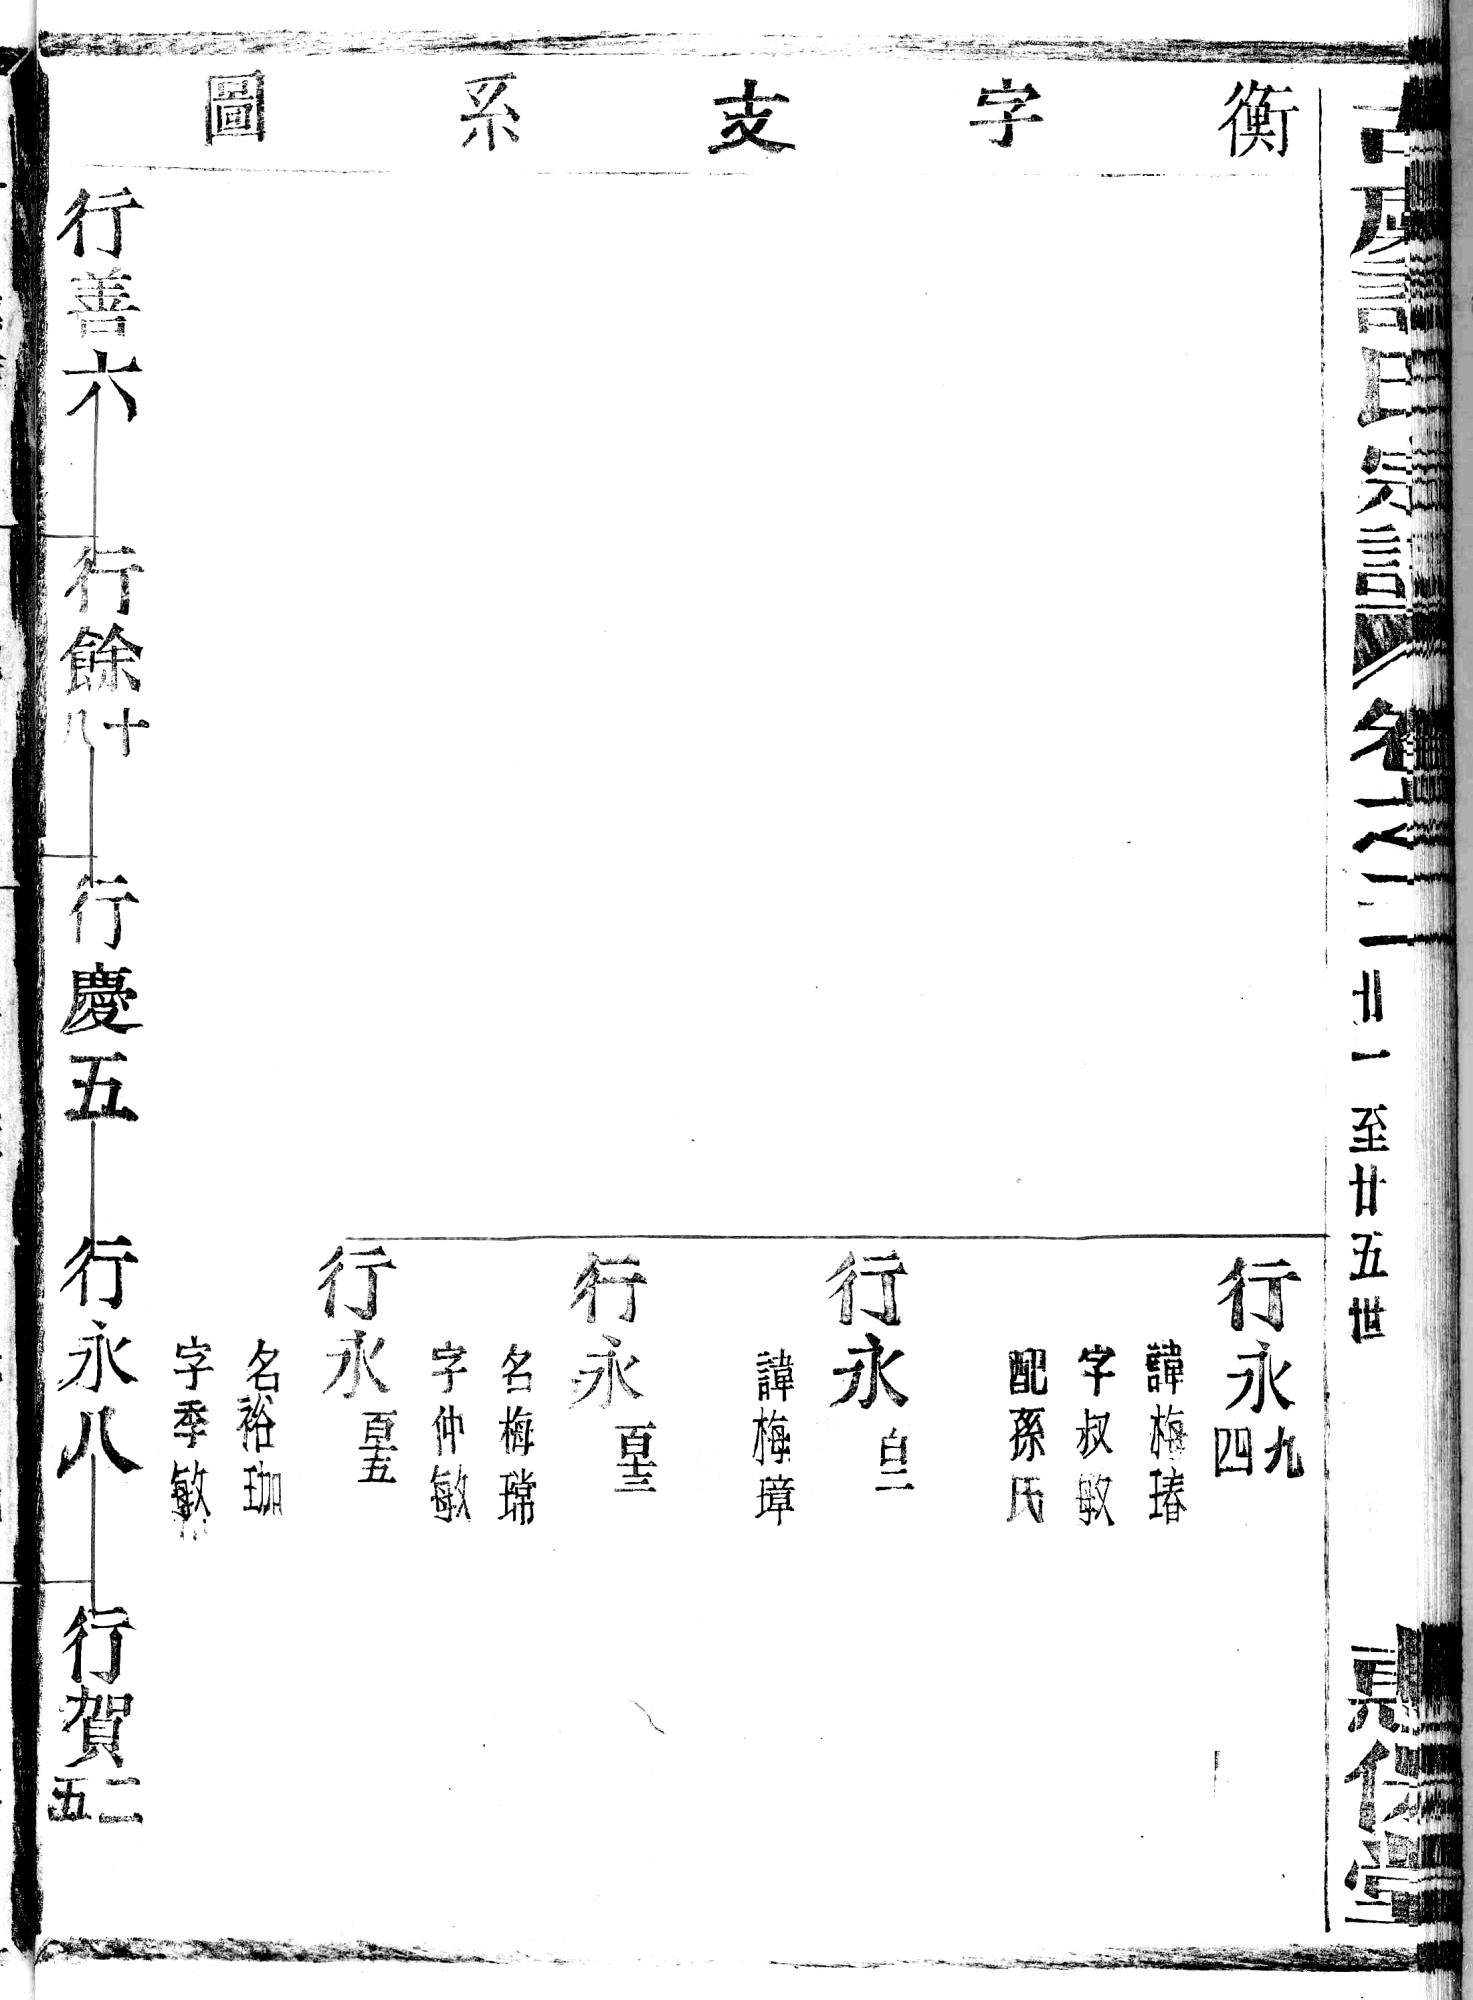 衡字支系圖
氏宗譜
卷之二
廿一至廿五世
堂
行永九四
諱梅瑃
字叔敏
配孫氏
行永百二
諱梅璋
行永百十三
名梅瑺
字仲敏
行永百十五
名裕珈
字季敏
行善六
行餘十八
行慶五
行永八
行賀二五